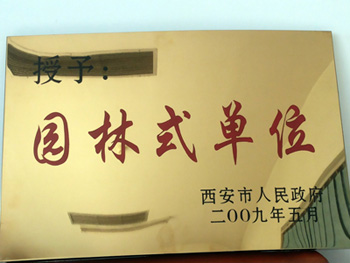 授予：
园林式单位
西安市人民政府
二〇〇九年五月